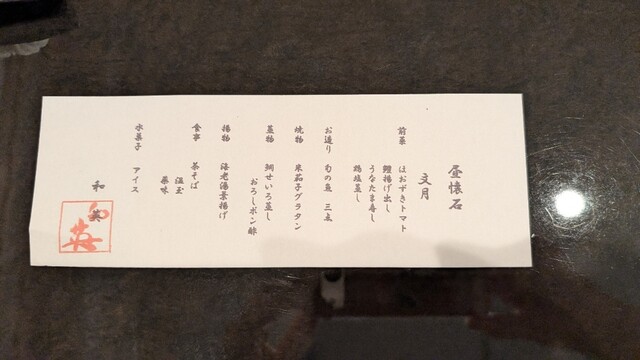 昼懐石
文月
前菜 ほおずきトマト
鱧揚げ出し
うなたま寿し
鶏塩蒸し
お造り 旬の魚 三点
焼物 米茄子グラタン
蒸物 鯛せいろ蒸し
おろしポン酢
揚物 海老湯葉揚げ
食事 茶そば
温玉
薬味
水菓子 アイス
和英